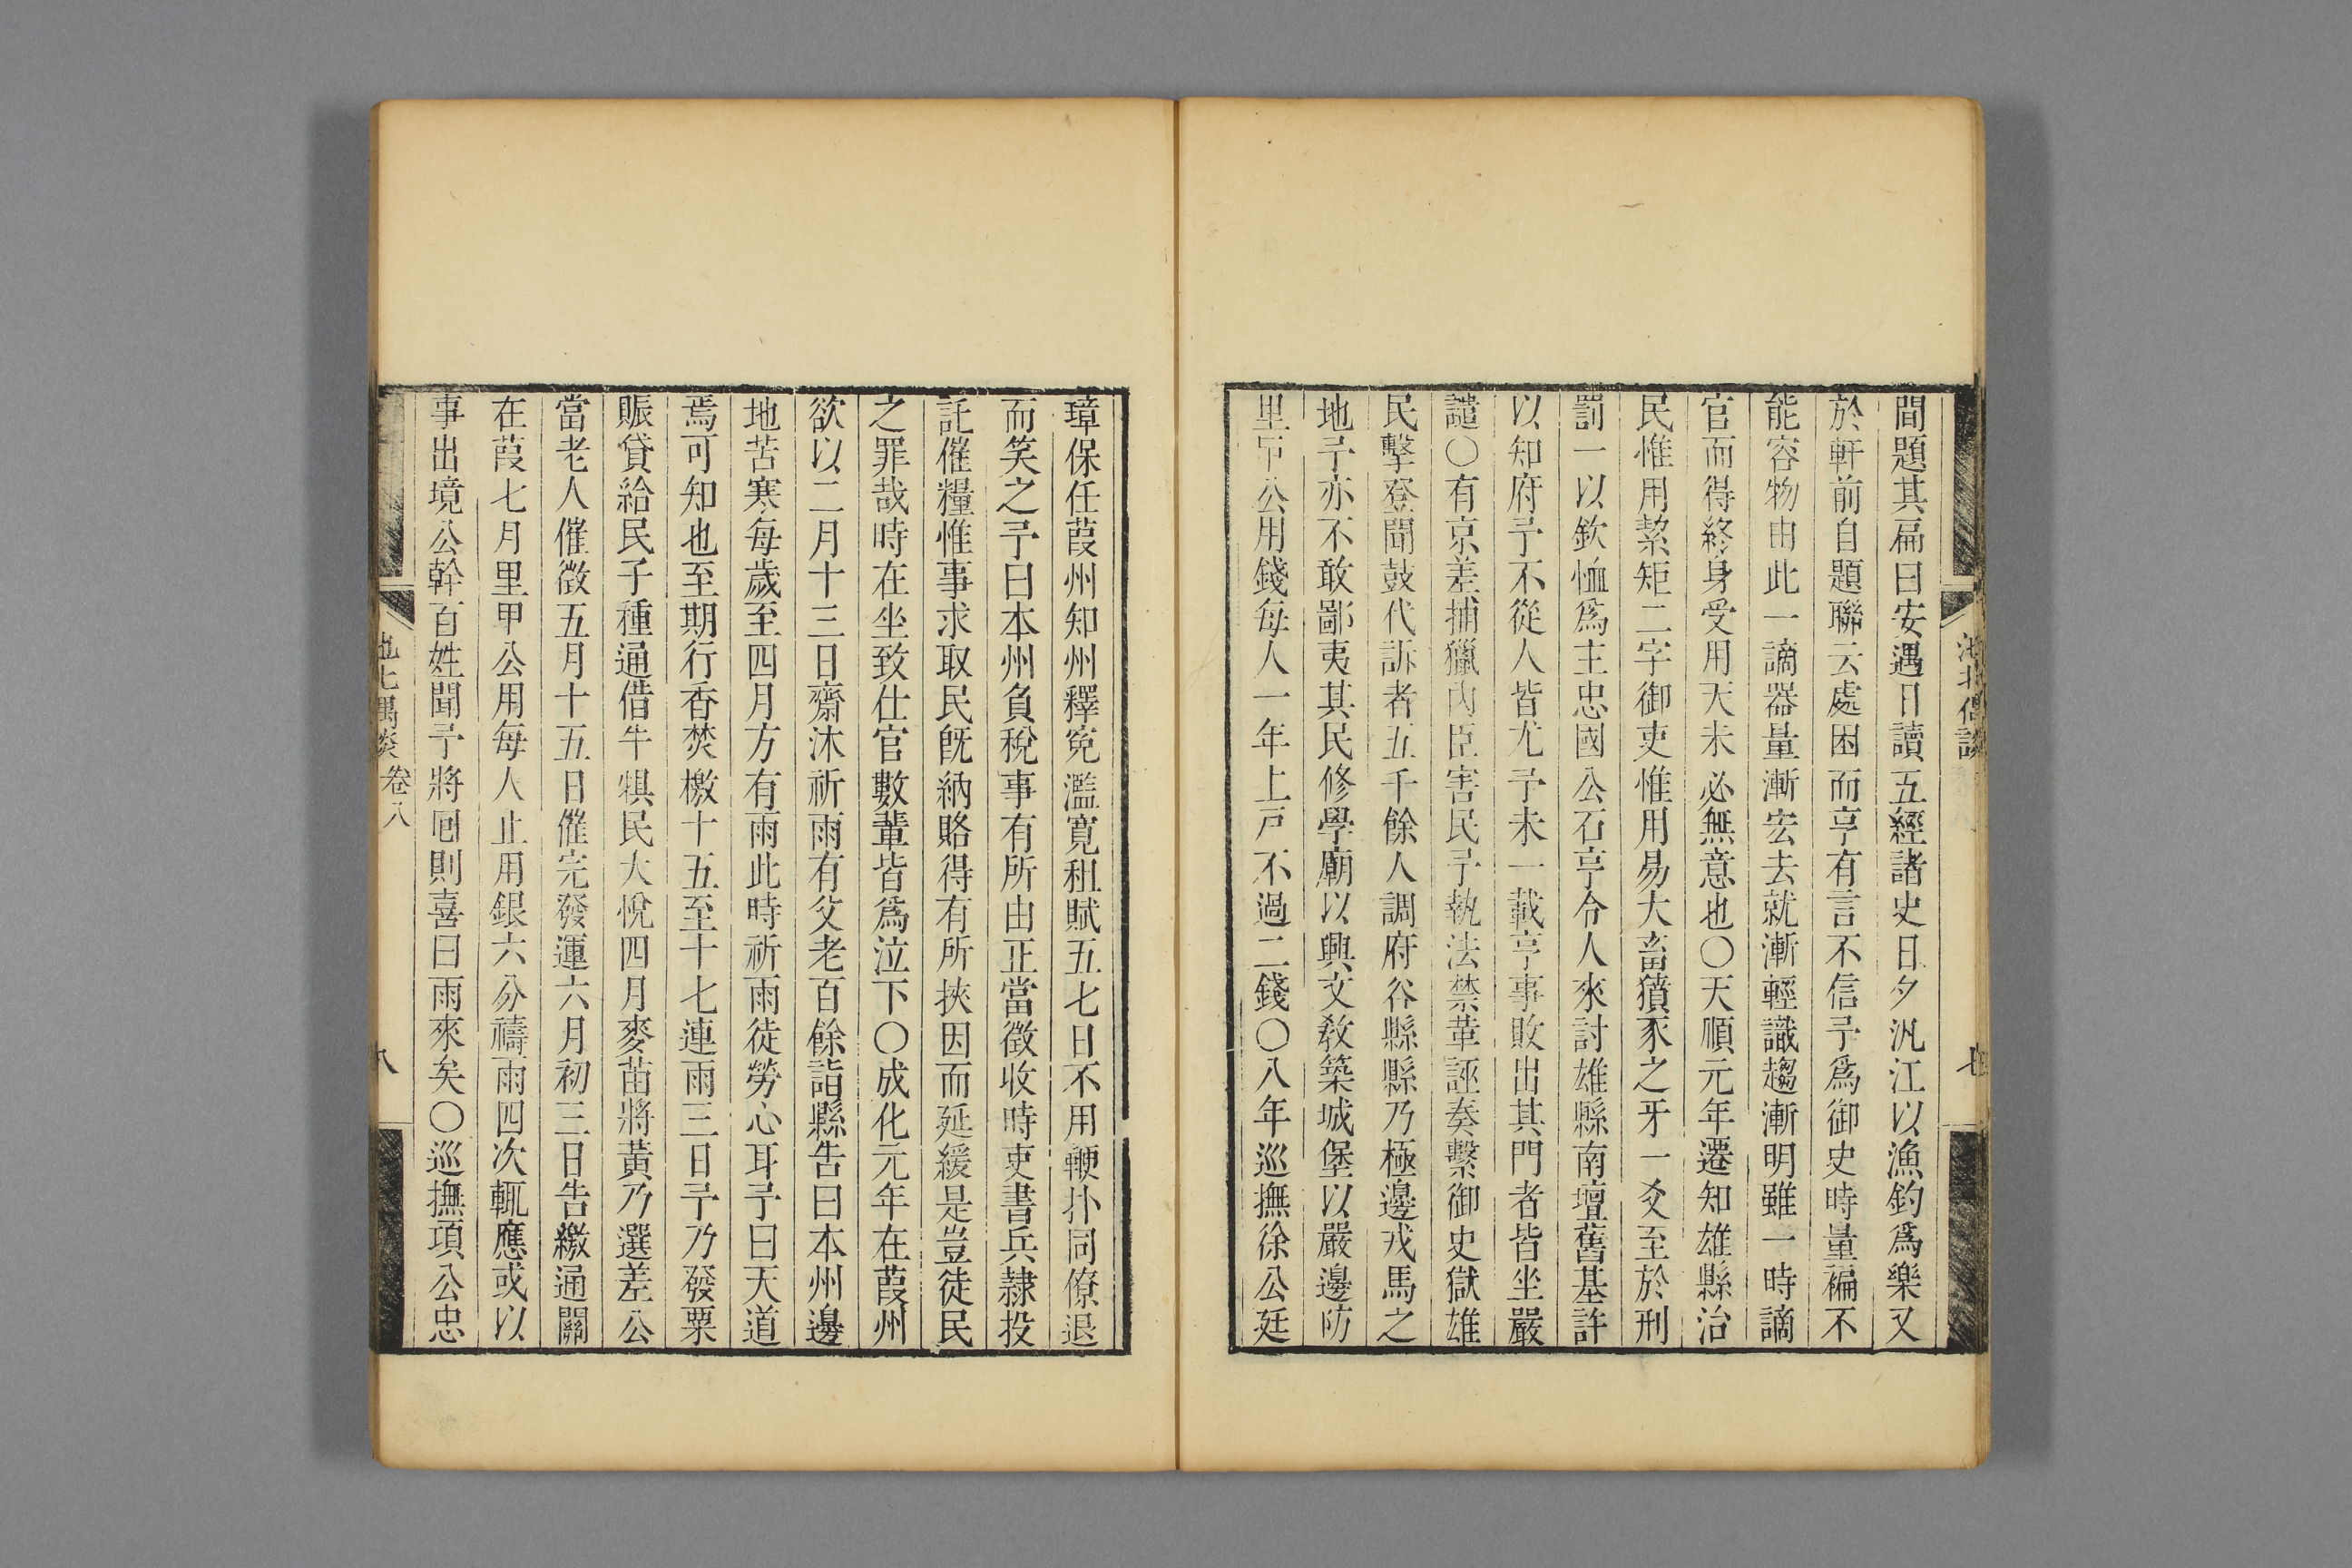 間題其扁曰安遇日讀五經諸史日夕汎江以漁釣爲樂又
於軒前自題聯云處困而亨有言不信予爲御史時量褊不
能容物由此一謫器量漸宏去就漸輕識趨漸明雖一時謫
官而得終身受用天未必無意也○天順元年遷知雄縣治
民惟用絜矩二字御吏惟用易大畜豶豕之牙一爻至於刑
罰一以欽恤爲主忠國公石亨令人來討雄縣南壇舊基許
以知府予不從人皆尤予未一載亨事敗出其門者皆坐嚴
譴○有京差捕獵内臣害民予執法禁革誣奏繫御史獄雄
民擊登聞鼓代訴者五千餘人調府谷縣縣乃極邊戎馬之
地予亦不敢鄙夷其民修學廟以興文敎築城堡以嚴邊防
里甲公用錢每人一年上戸不過二錢○八年巡撫徐公廷
璋保任葭州知州釋寃濫寛租賦五七日不用鞭扑同僚退
而笑之予曰本州負稅事有所由正當徵收時吏書兵隷投
託催糧惟事求取民旣納賂得有所挾因而延緩是豈徒民
之罪哉時在坐致仕官數輩皆爲泣下○成化元年在葭州
欲以二月十三日齋沐祈雨有父老百餘詣縣告曰本州邊
地苦寒每歲至四月方有雨此時祈雨徒勞心耳予曰天道
焉可知也至期行香焚檄十五至十七連雨三日予乃發粟
賑貸給民子種通借牛犋民大悅四月麥苗將黃乃選差公
當老人催徵五月十五日催完發運六月初三日告繳通關
在葭七月里甲公用每人止用銀六分禱雨四次輒應或以
事出境公幹百姓聞予將囘則喜曰雨來矣○巡撫項公忠
池北偶談
七
卷八
八